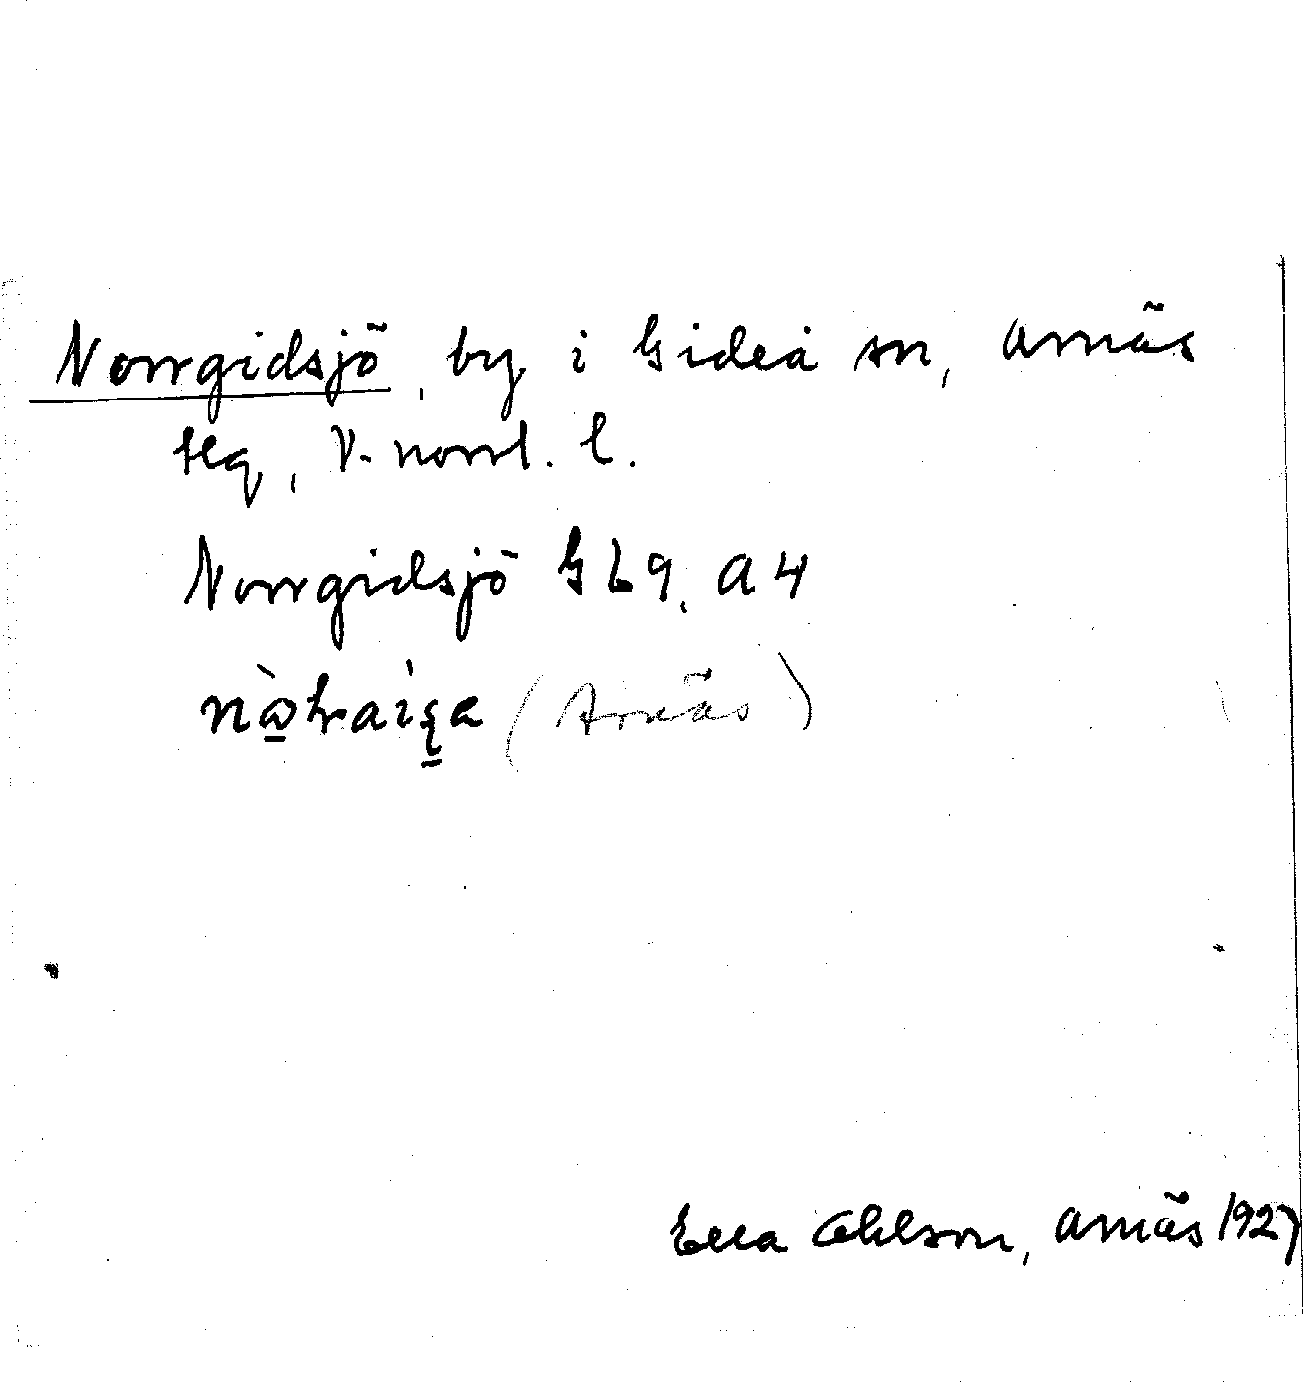 Norrgidsjö, by i Gideå sn, Arnäs
tlg, V-norrl. l.
Norrgidsjö Gb9, A4
(Arnäs)
Ella Ohlson, Arnäs 1927